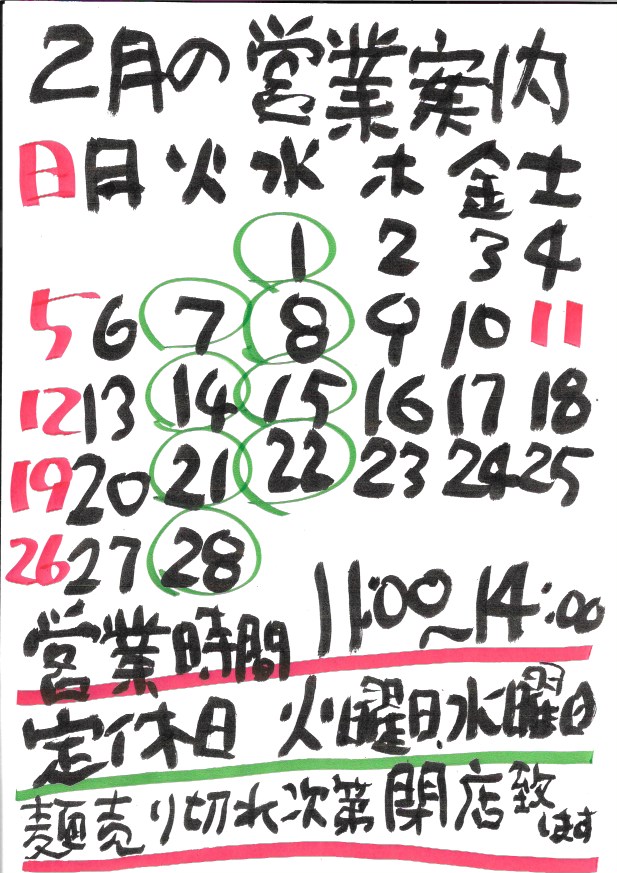 2月の営業案内
日 月 火 水 木 金 土
1 2 3 4
5 6 7 8 9 10 11
12 13 14 15 16 17 18
19 20 21 22 23 24 25
26 27 28
11:00~14:00
営業時間
定休日 火曜日.水曜日
麺売り切れ次第閉店致します